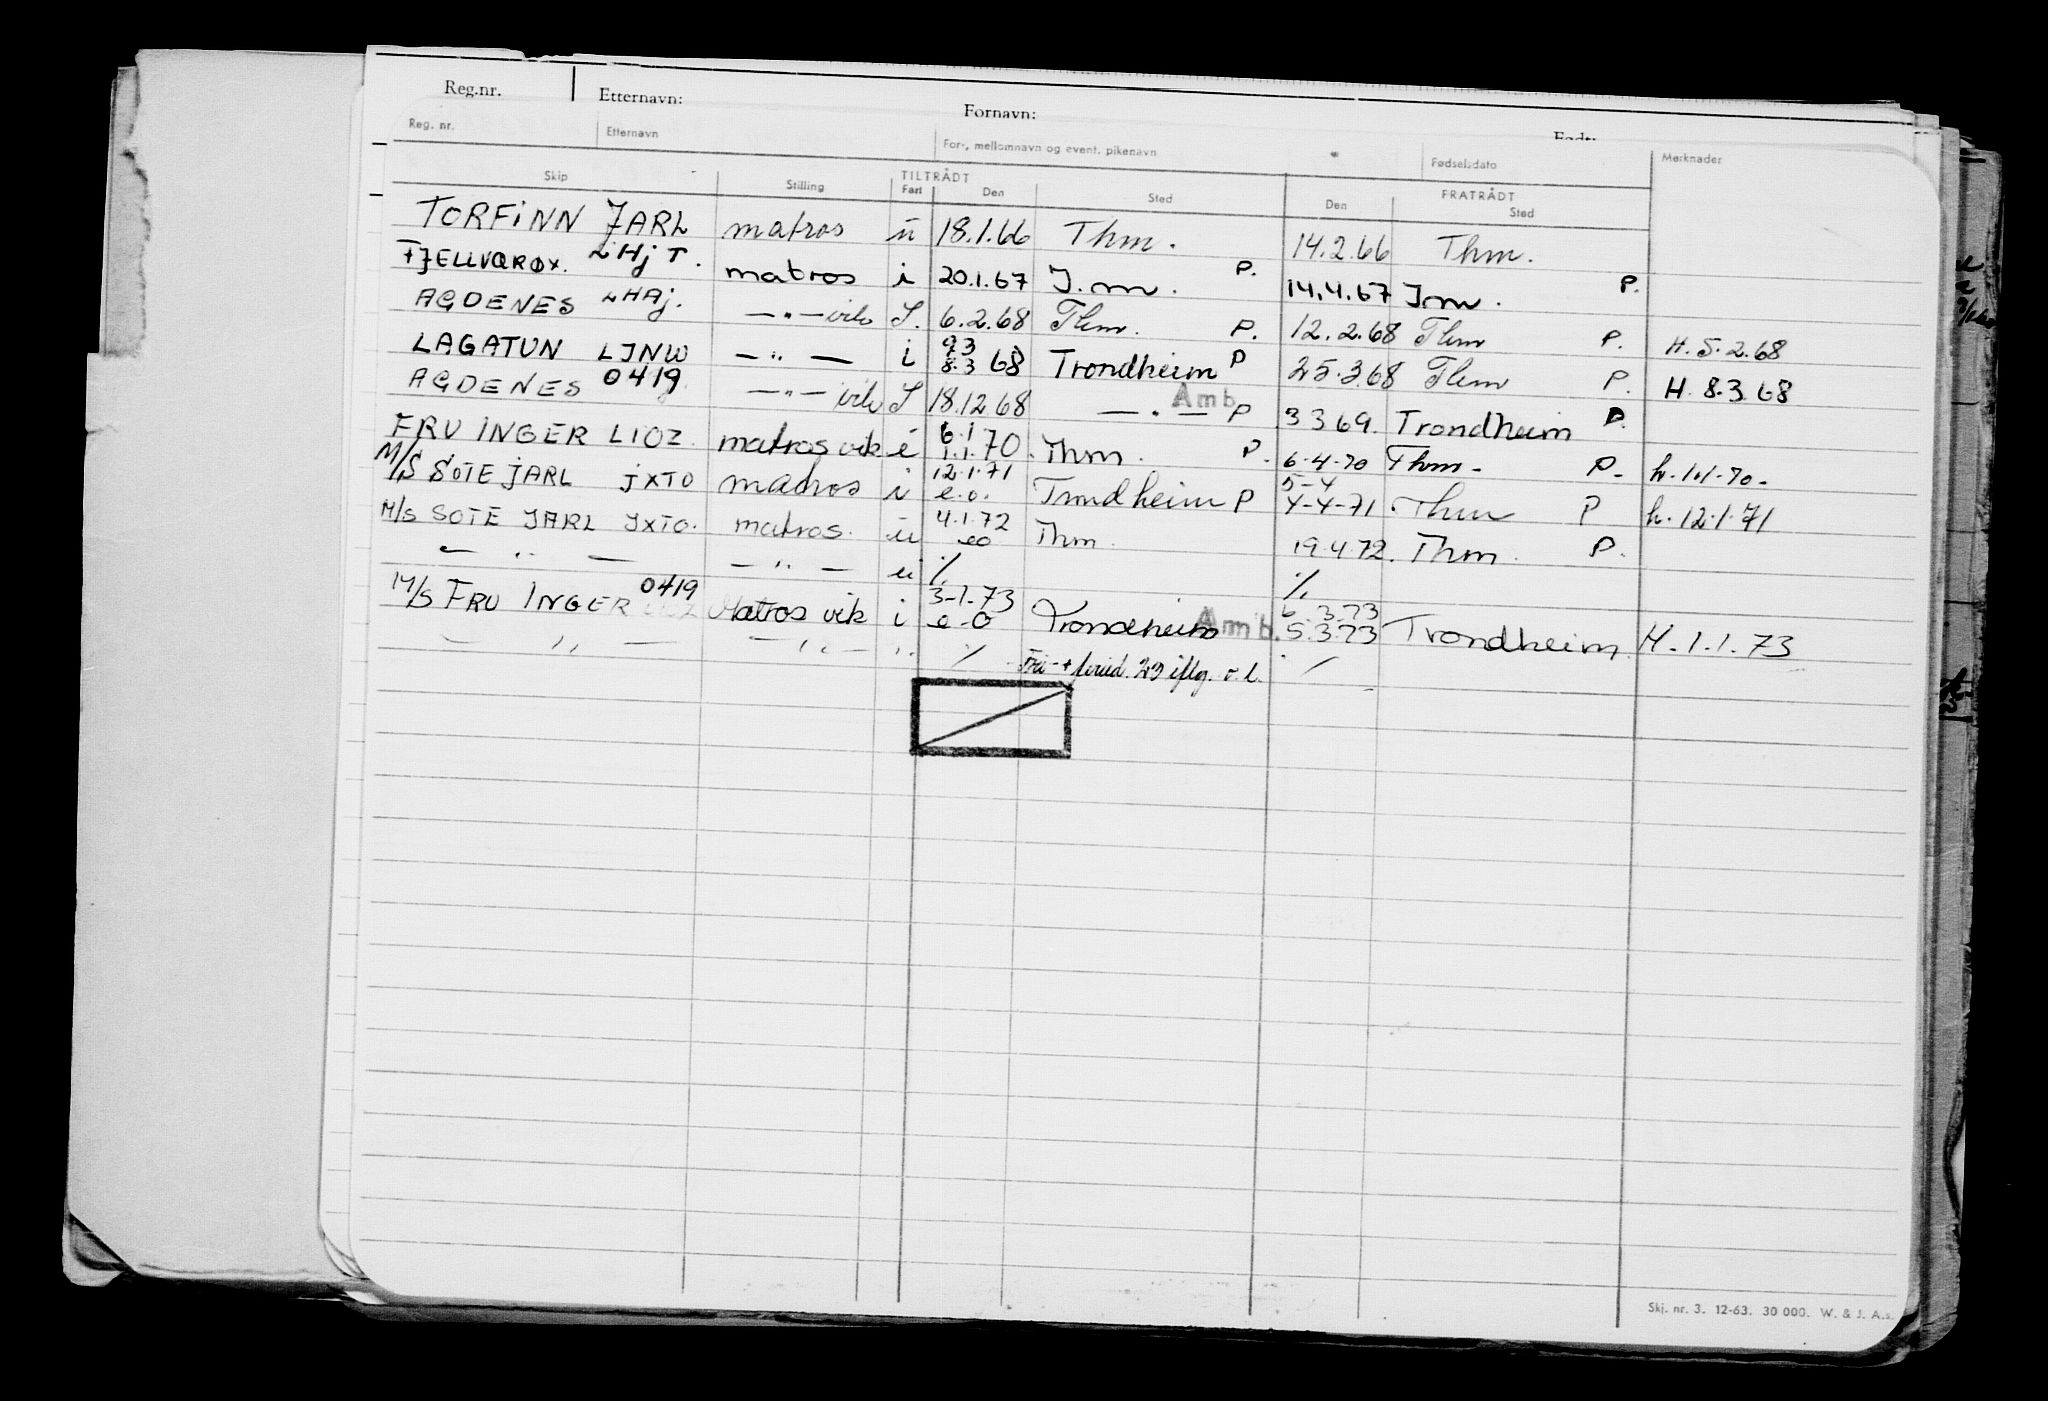 Reg.nr. Etternavn: Fornavn:
Reg. nr. Etternavn For-, mellomnavn og event. pikenavn Fødselsdato Merknader
Skip Stilling TILTRÅDT Fart Den Sted FRATRÅDT Den Sted
TORFINN JARL matros u 18.1.66 Thm. 14.2.66 Thm.
FJELLVÆRØY. LHJT. matros i 20.1.67 P. 14.4.67 P.
AGDENES LHAJ. —"— vik S. 6.2.68 Thm. P. 12.2.68 Thm P. H. 5.2.68
LAGATUN LJNW —"— i 9.3 8.3 68 Trondheim P 25.3.68 Thm P. H. 8.3.68
AGDENES 0419 —"— vik S 18.12.68 —"— Amb P 3 3 69. Trondheim P.
FRU INGER LIOZ. matros vik i 6.1 1.1.70. Thm. P. 6.4.70 Thm. P. h. 1.1.70.
M/S SOTE JARL JXTO matros i 12.1.71 e.o. Trondheim P 5-4 4-4-71 Thm P h. 12.1.71
M/S SOTE JARL JXTO. matros. u 4.1.72 eo Thm. 19.4.72. Thm. P.
—"— —"— u ./. ./.
M/S FRU INGER 0419 Matros vik i 3-1.73 e-o Trondheim Amb. 6.3.73 5.3.73 Trondheim. H. 1.1.73
—"— —"— " ./. ./.
Skj. nr. 3. 12-63. 30 000. W. & J. A.s.